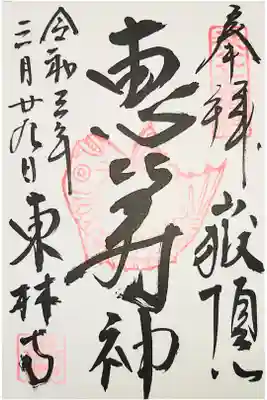 奉拝 嶽頂山
恵比寿神
令和三年
三月廿九日 東林寺